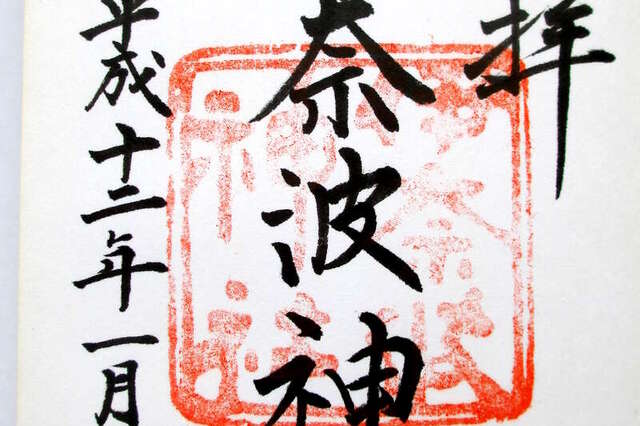 拝
奈波神
平成十二年一月